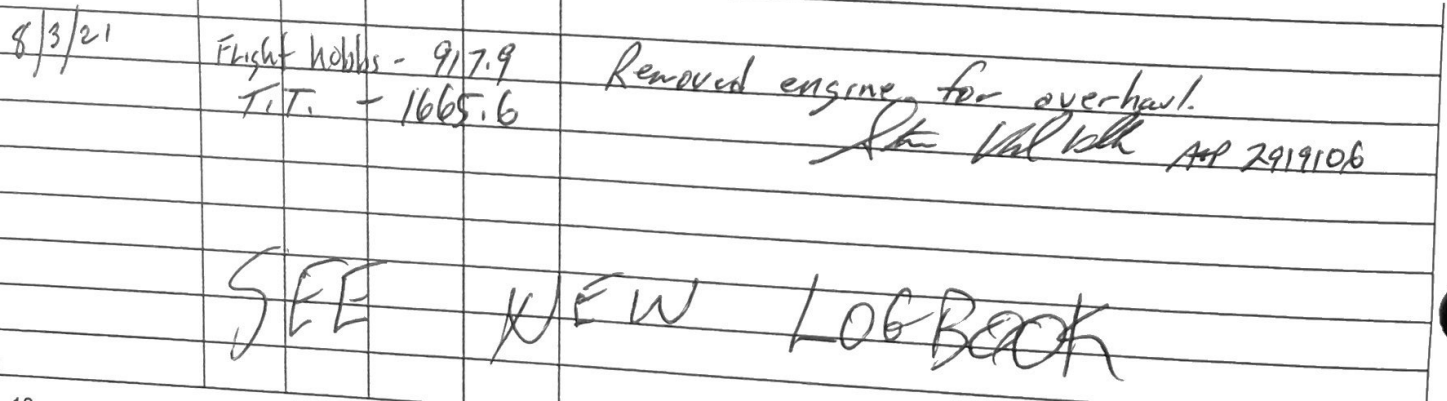 8/3/21 Flight hobbs - 917.9 Removed engine for overhaul.
T.T. - 1665.6
A&P 2919106
SEE NEW LOGBOOK